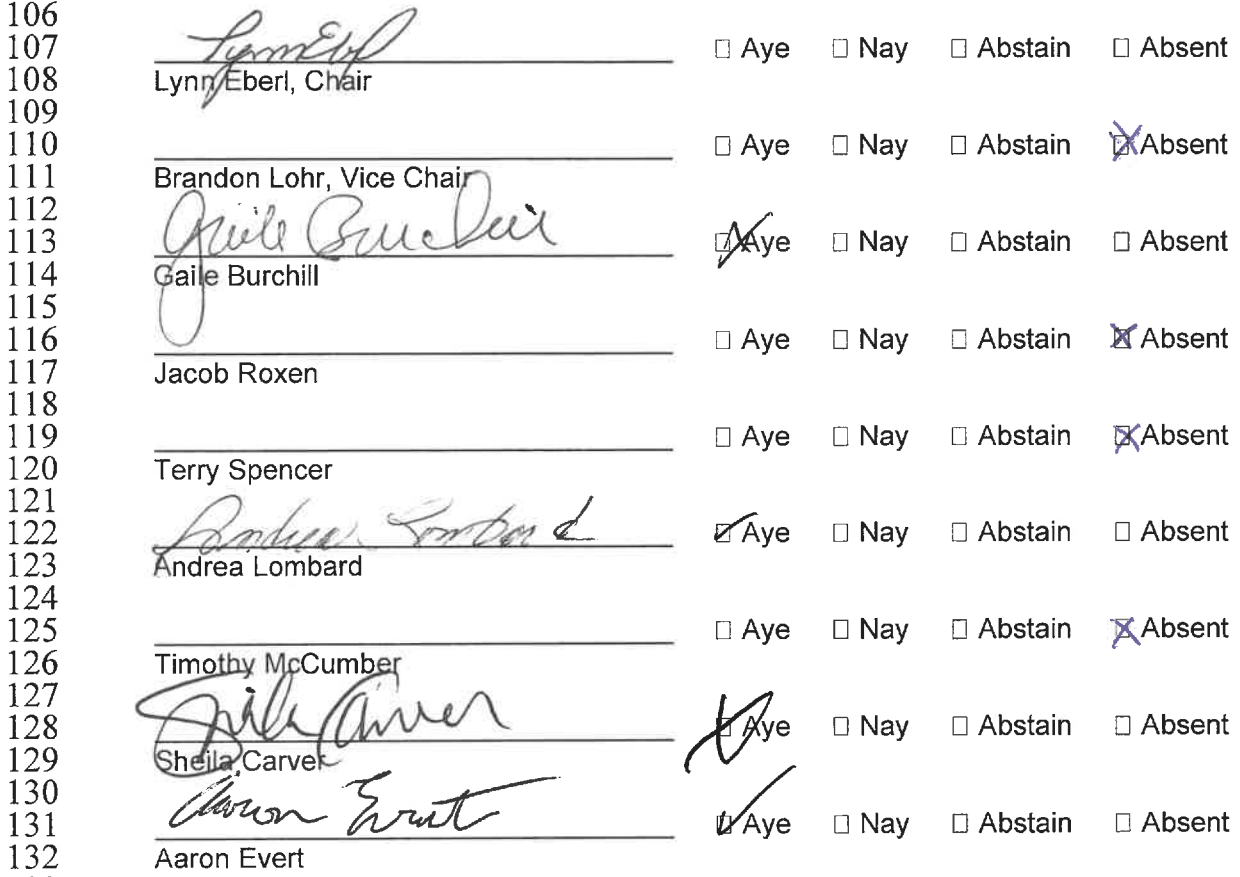 106
107 Lynn Eberl ☐ Aye ☐ Nay ☐ Abstain ☐ Absent
108 Lynn Eberl, Chair
109
110 ☐ Aye ☐ Nay ☐ Abstain ☒ Absent
111 Brandon Lohr, Vice Chair
112
113 Gaile Burchill ☒ Aye ☐ Nay ☐ Abstain ☐ Absent
114 Gaile Burchill
115
116 ☐ Aye ☐ Nay ☐ Abstain ☒ Absent
117 Jacob Roxen
118
119 ☐ Aye ☐ Nay ☐ Abstain ☒ Absent
120 Terry Spencer
121
122 Andrea Lombard ☑ Aye ☐ Nay ☐ Abstain ☐ Absent
123 Andrea Lombard
124
125 ☐ Aye ☐ Nay ☐ Abstain ☒ Absent
126 Timothy McCumber
127
128 Sheila Carver ☒ Aye ☐ Nay ☐ Abstain ☐ Absent
129 Sheila Carver
130
131 Aaron Evert ☑ Aye ☐ Nay ☐ Abstain ☐ Absent
132 Aaron Evert